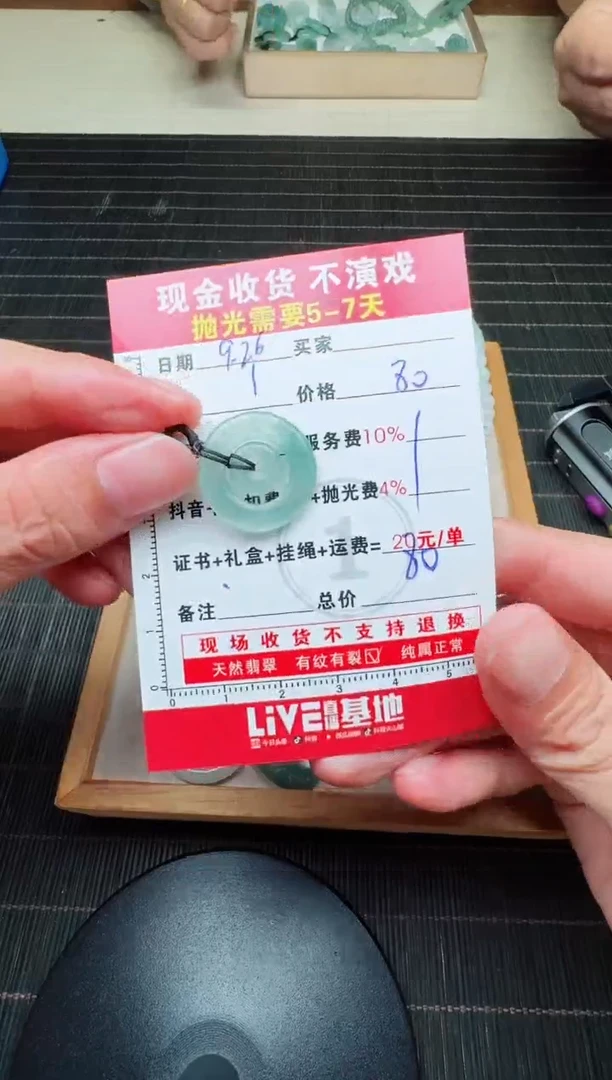 现金收货 不演戏
抛光需要5-7天
日期 9.26 买家
1 价格 80
服务费10%
抖音 扣费 +抛光费4%
证书+礼盒+挂绳+运费= 20元/单
80
备注 总价
现场收货不支持退换
天然翡翠 有纹有裂☑ 纯属正常
2
1
0
0 1 2 3 4 5
LiVE直播基地